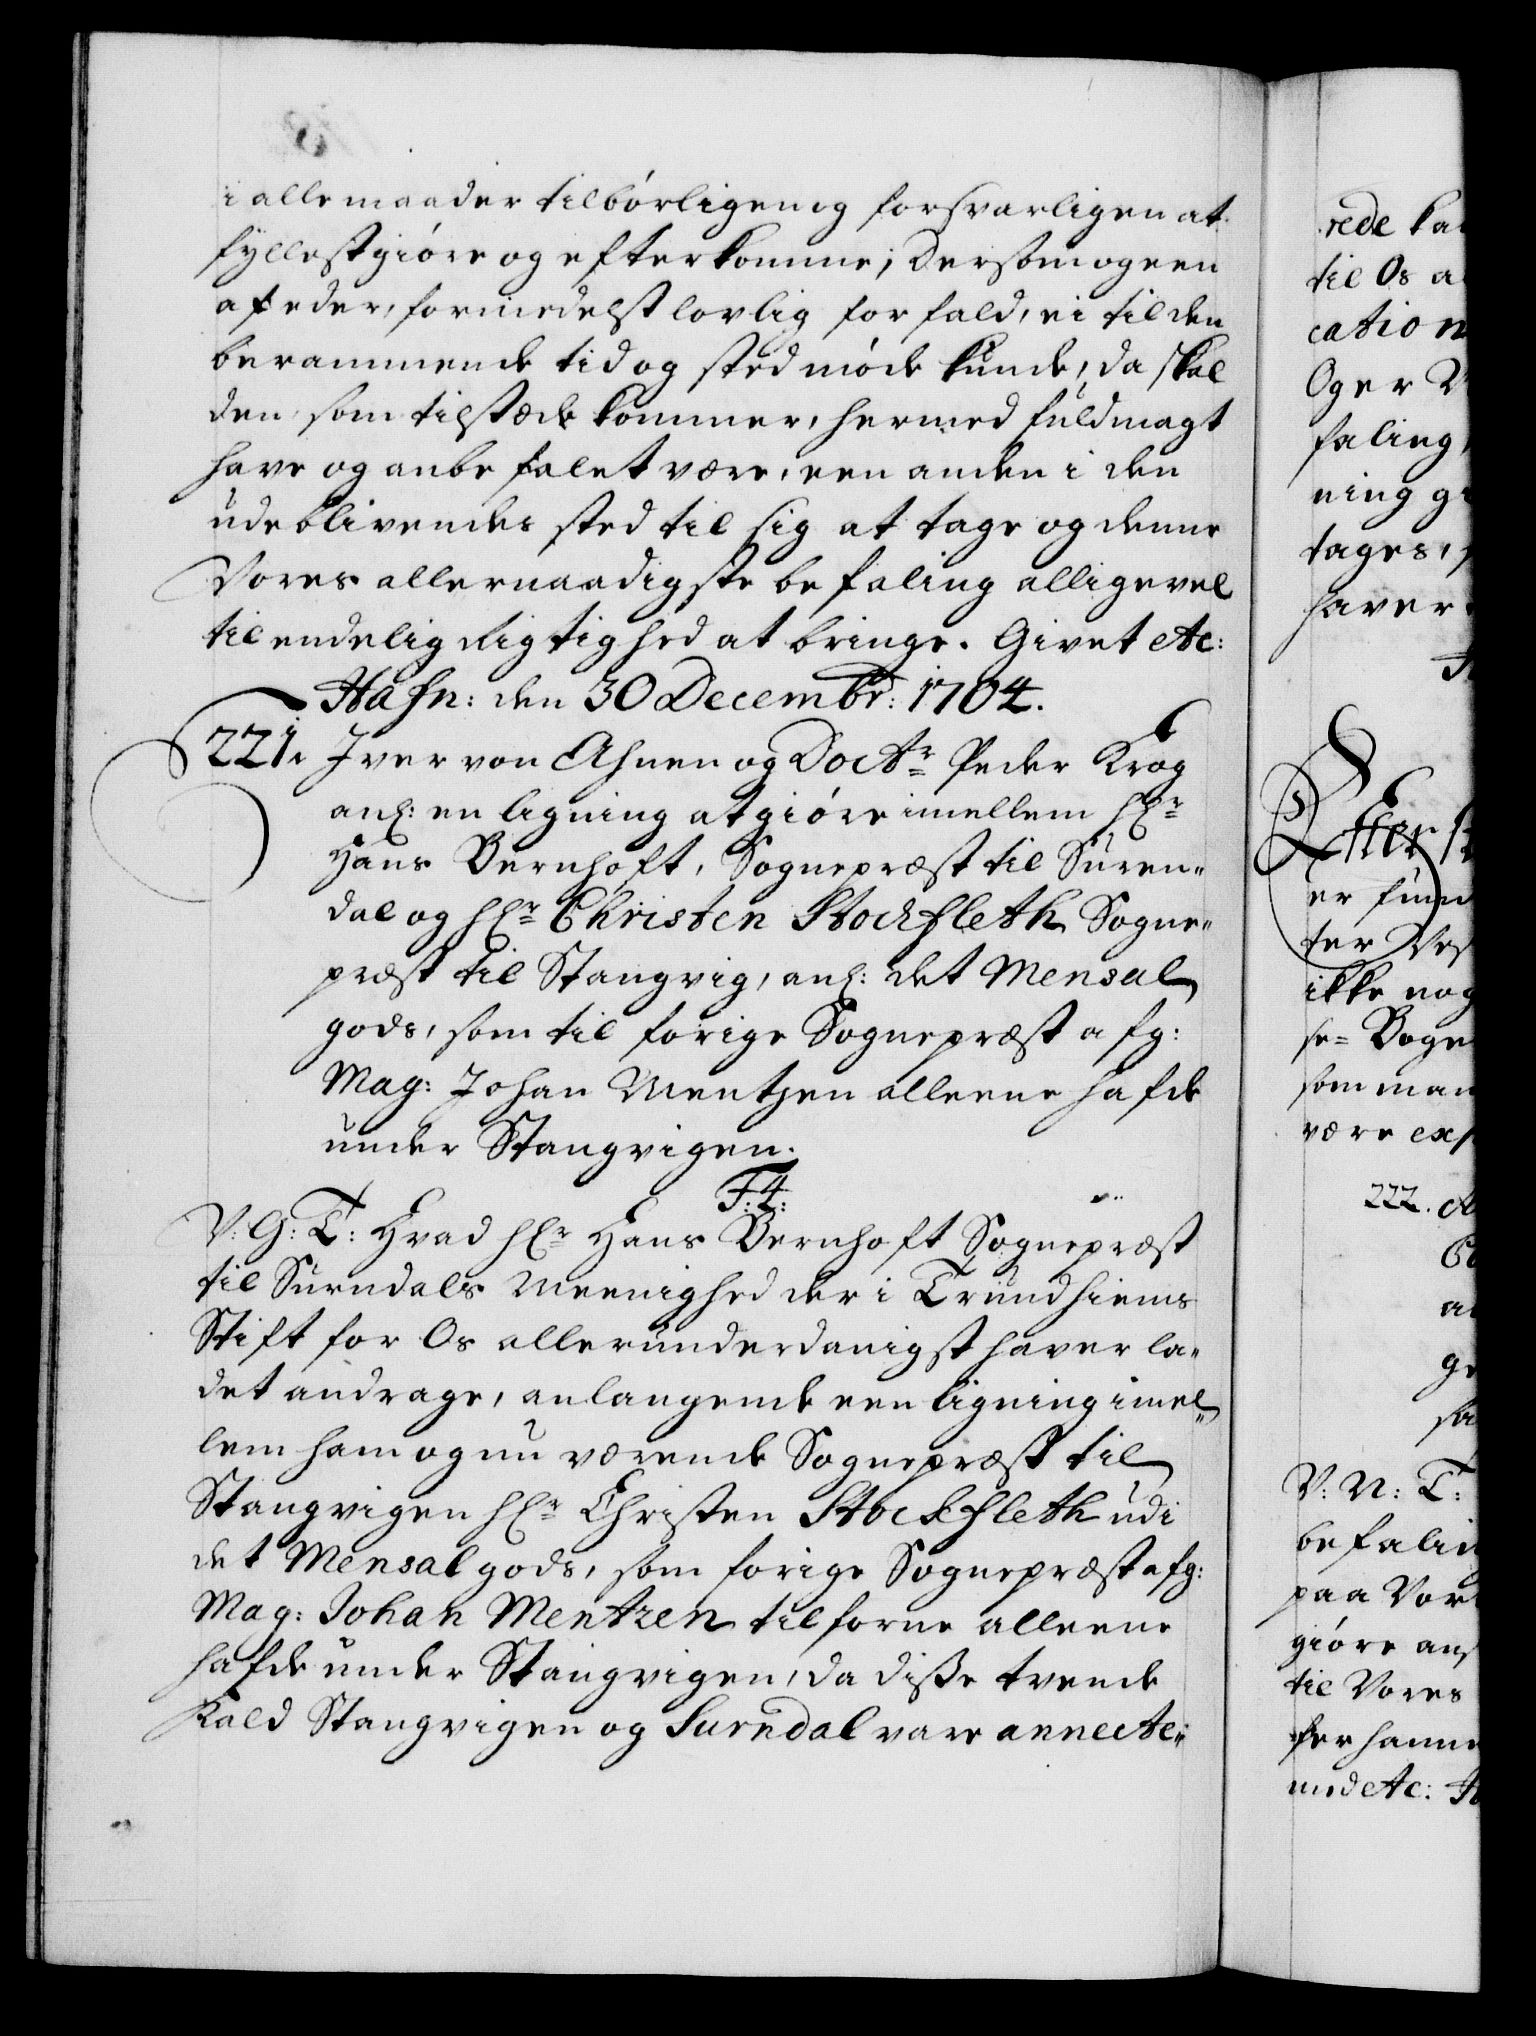 i alle maader tilbórligen og forsvarligen at
fyllestgióre og efterkomme; Dersom og een
af eder, formedelst lovlig forfald, ei til den
berammende tid og sted móde kunde, da skal
den, som tilstæde kommer, hermed fuldmagt
have og anbefalet være, een anden i den
udeblivendes sted til sig at tage og denne
Vores allernaadigste befaling alligevel
til endelig Rigtighed at bringe. Givet etc:
Hafn: den 30 Decembr: 1704.
221. Iver von Ahnen og Doctr Peder Krog
anl: en ligning at gióre imellem Hr
Hans Bernhoft, Sognepræst til Suren„
dal og Hr Christen Stockfleth Sogne„
præst til Stangvig, anl: det Mensal
gods, som til forige Sognepræst afg:
Mag: Johan Mentzen alleene hafde
under Stangvigen.
F: 4:
V: G: T: Hvad Hr Hans Bernhoft Sognepræst
til Surndals Meenighed der i Trundhiems
Stift for Os allerunderdanigst haver la„
det andrage, anlangende een ligning imel„
lem ham og nu værende Sognepræst til
Stangvigen Hr Christen Stockfleth udi
det Mensal gods, som forige Sognepræst afg:
Mag: Johan Mentzen tilforne alleene
hafde under Stangvigen, da disse tvende
Kald Stangvigen og Surndal vare annecte„
rede
til Os
catio
Og er
faling,
ning
tages,
haver
Efter
er fund
ter
ikke nog
se= Boge
som man
være exp
222.
V: N: T:
befalin
paa Vor
gióre ans
til Vores
hanne
und etc: